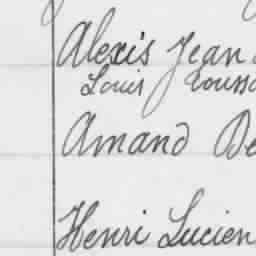 Alexis Jean
Louis Rouss
Amand De
Henri Lucien